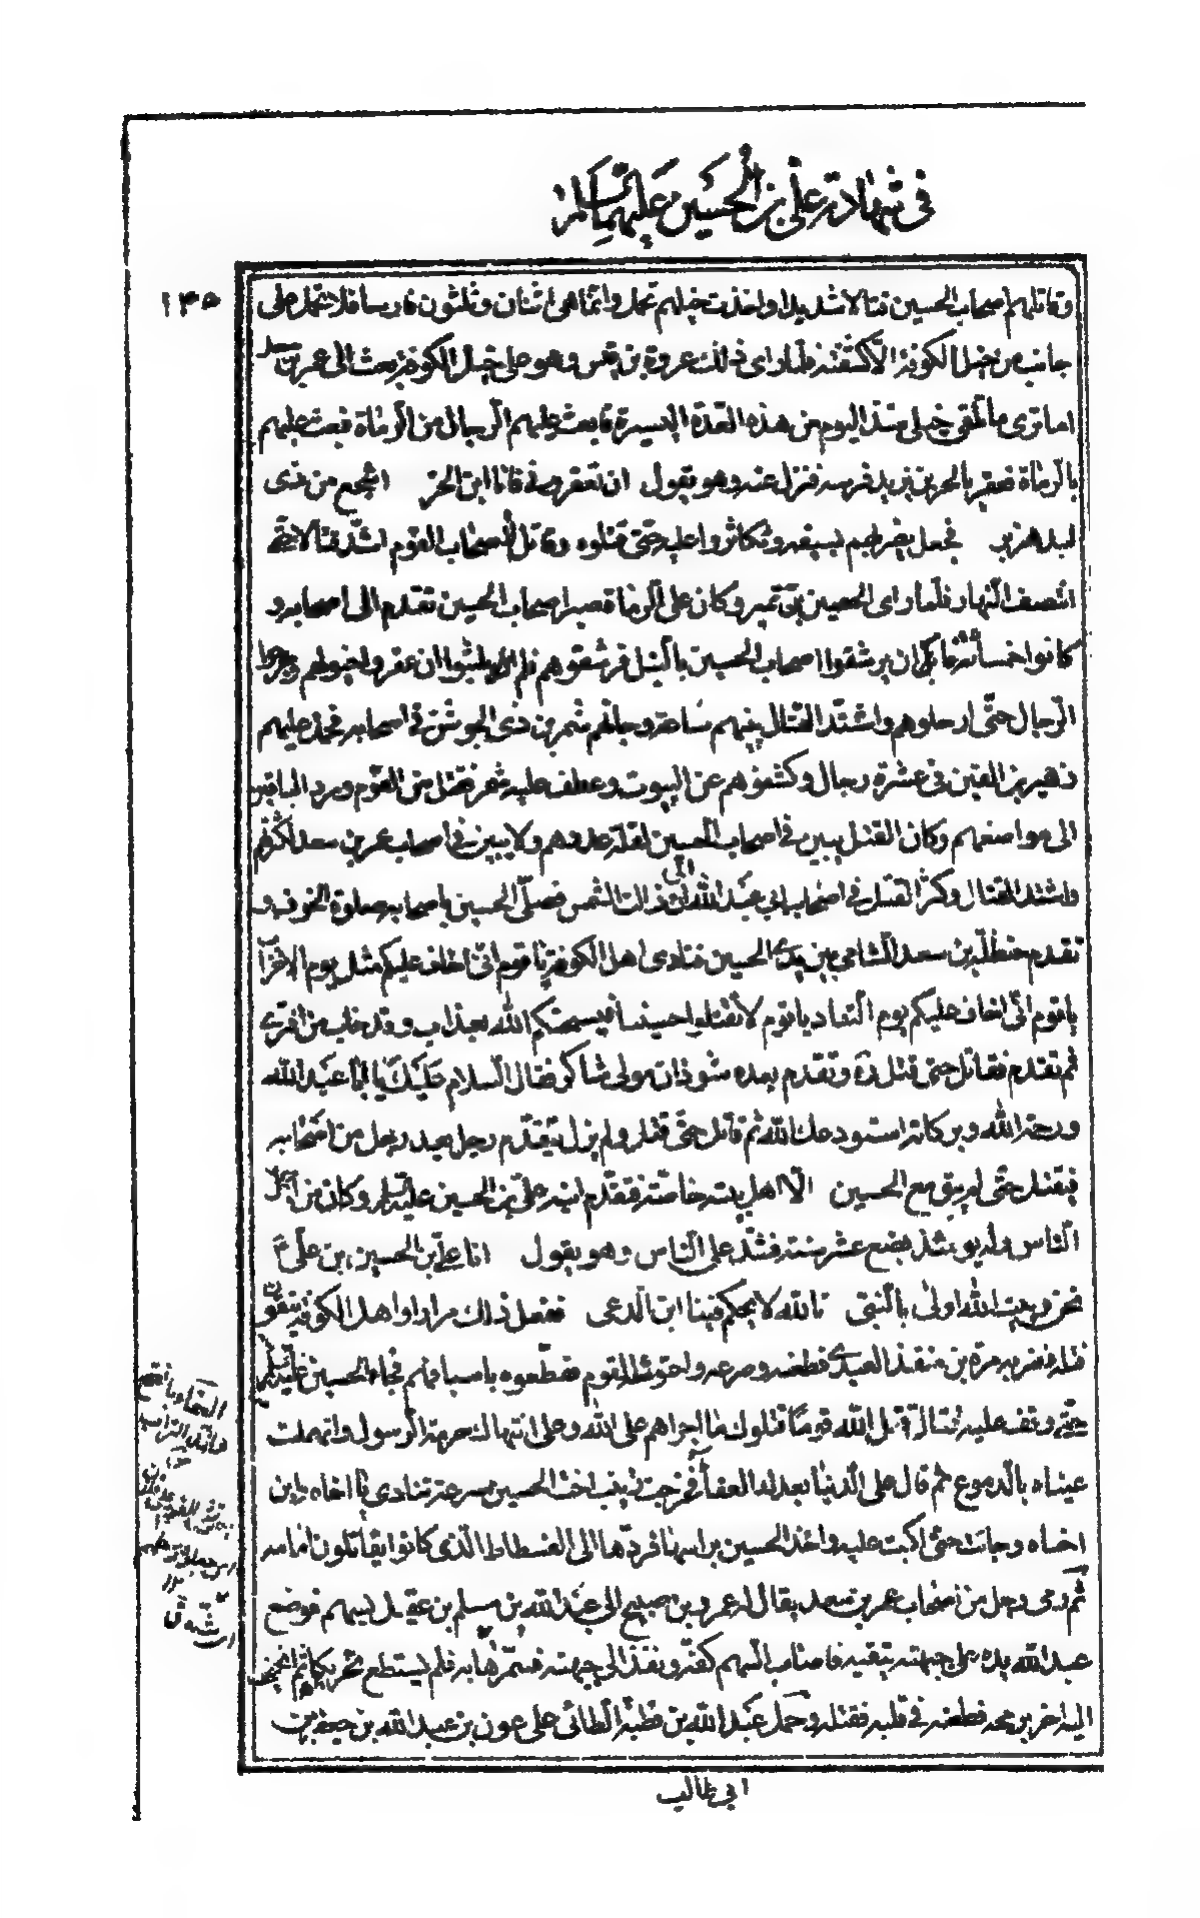 في شهادة علي بن الحسين عليهما السلام
١٣٥
وقاتلهم اصحاب الحسين قتالا شديدا واخذت خيلهم تحمل وانما هي اثنان وثلثون فارسا فلا تحمل على
جانب من خيل الكوفة الا كشفته فلما راى ذلك عروة بن قيس وهو على خيل الكوفة بعث الى عمر بن سعد
اما ترى ما تلقى خيلي منذ اليوم من هذه العدة اليسيرة فابعث عليهم الرجال من الرماة فبعث عليهم
بالرماة فعقر بالحر بن يزيد فرسه فنزل عنه وهو يقول ان تعقروني فانا ابن الحر اشجع من ذي
لبد هزبر فجعل يضربهم بسيفه وتكاثروا عليه حتى قتلوه وقاتل اصحاب القوم اشد قتال حتى
انتصف النهار فلما راى الحصين بن نمير وكان على الرماة صبر اصحاب الحسين تقدم الى اصحابه و
كانوا خمسمائة نابل ان يرشقوا اصحاب الحسين بالنبل فرشقوهم فلم يلبثوا ان عقروا خيولهم وجرحوا
الرجال حتى ارجلوهم واشتد القتال بينهم ساعة وجاءهم شمر بن ذي الجوشن في اصحابه فحمل عليهم
زهير بن القين في عشرة رجال وكشفوهم عن البيوت وعطف عليه شمر فقتل من القوم ورد الباقين
الى مواضعهم وكان القتل يبين في اصحاب الحسين لقلة عددهم ولا يبين في اصحاب عمر بن سعد لكثرتهم
واشتد القتال وكثر القتل في اصحاب ابي عبد الله الى ان زالت الشمس فصلى الحسين باصحابه صلوة الخوف و
تقدم حنظلة بن سعد الشامي بين يدي الحسين فنادى اهل الكوفة يا قوم اني اخاف عليكم مثل يوم الاحزاب
يا قوم اني اخاف عليكم يوم التناد يا قوم لا تقتلوا حسينا فيسحتكم الله بعذاب وقد خاب من افترى
ثم تقدم فقاتل حتى قتل ره وتقدم بعده شوذب مولى شاكر فقال السلام عليك يا ابا عبد الله
ورحمة الله وبركاته استودعك الله ثم قاتل حتى قتل ولم يزل يتقدم رجل بعد رجل من اصحابه
فيقتل حتى لم يبق مع الحسين الا اهل بيته خاصة فتقدم ابنه علي بن الحسين عليه السلم وكان من اجمل
الناس وله يومئذ بضع عشر سنة فشد على الناس وهو يقول انا علي بن الحسين بن علي
نحن وبيت الله اولى بالنبي تالله لا يحكم فينا ابن الدعي ففعل ذلك مرارا واهل الكوفة يتقون
قتله فضربه مرة بن منقذ العبدي فطعنه وصرعه واحتوشه القوم فقطعوه باسيافهم فجاء الحسين عليه السلم
حتى وقف عليه فقال قتل الله قوما قتلوك ما اجراهم على الله وعلى انتهاك حرمة الرسول وانهملت
عيناه بالدموع ثم قال على الدنيا بعدك العفا فخرجت زينب اخت الحسين مسرعة تنادي يا اخاه وابن
اخاه وجاءت حتى اكبت عليه واخذ الحسين براسها فردها الى الفسطاط الذي كانوا يقاتلون امامه
ثم رمى رجل من اصحاب عمر بن سعد يقال له عمرو بن صبيح الى عبد الله بن مسلم بن عقيل بسهم فوضع
عبد الله يده على جبهته يتقيه فاصاب السهم كفه ونفذ الى جبهته فسمرها به فلم يستطع تحريكها ثم انحنى
اليه اخر برمحه فطعنه في قلبه فقتله وحمل عبد الله بن قطبة الطائي على عون بن عبد الله بن جعفر بن
ابي طالب